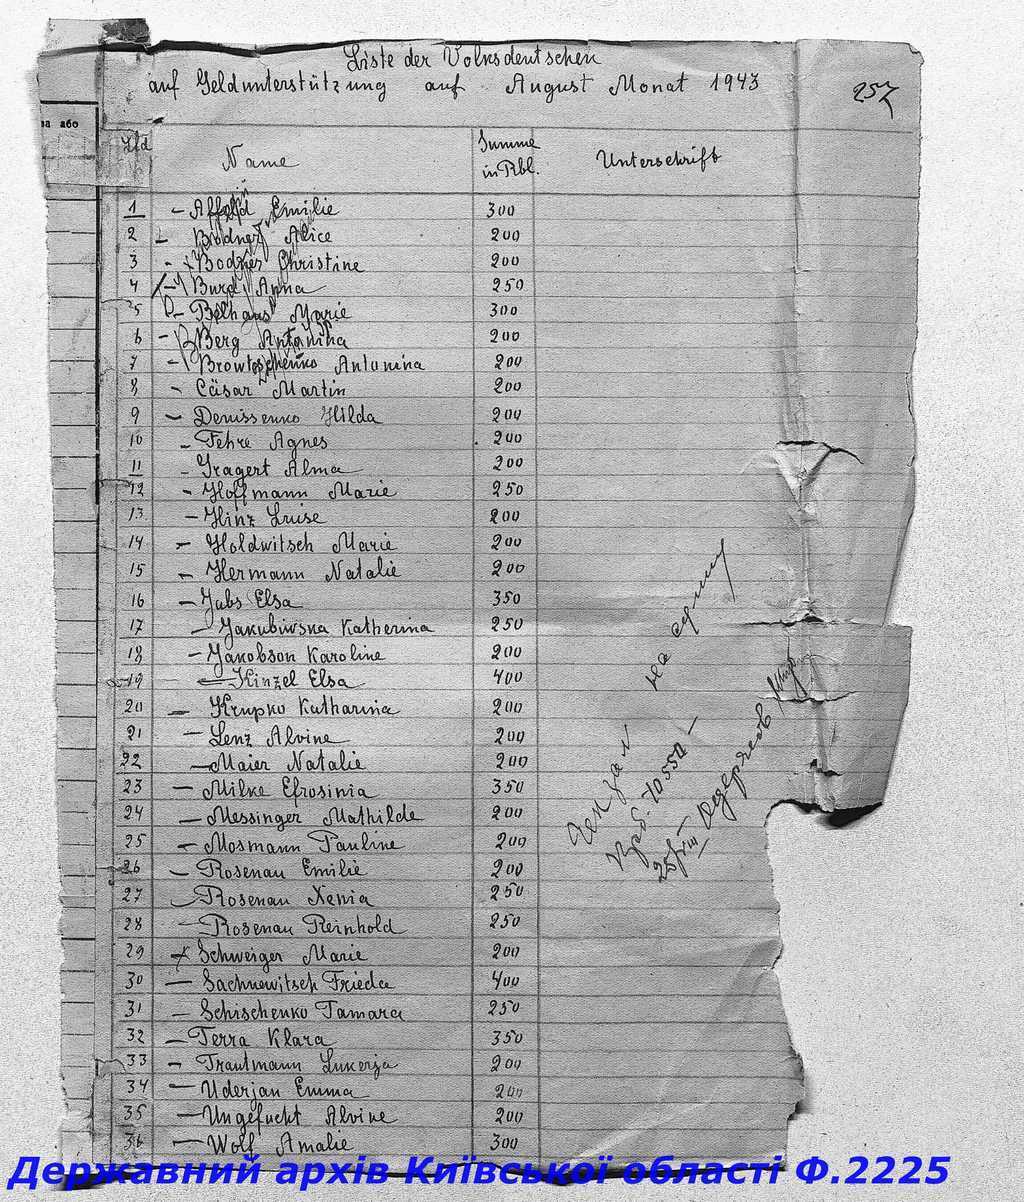 Liste der Volksdeutschen
auf Geldunterstützung auf August Monat 1943
257
ва або
Lfd Name Summe in Rbl. Unterschrift
1 – Emilie 300
2 – Bodner Alice 200
3 – Bodner Christine 200
4 – Burdi Anna 250
5 – Belhaus Marie 300
6 – Berg Antonina 200
7 – Antonina 200
8 – Cäsar Martin 200
9 – Denissenko Hilda 200
10 – Fehre Agnes 200
11 – Gragert Alma 200
12 – Hoffmann Marie 250
13 – Hinz Luise 200
14 – Holdwitsch Marie 200
15 – Hermann Natalie 200
16 – Jabs Elsa 350
17 – Jakubivska Katherina 250
18 – Jakobson Karoline 200
19 – Kinzel Elsa 400
20 – Krupko Katharina 200
21 – Lenz Alvine 200
22 – Maier Natalie 200
23 – Milke Efrosinia 350
24 – Messinger Mathilde 200
25 – Mosmann Pauline 200
26 – Rosenau Emilie 200
27 – Rosenau Xenia 250
28 – Rosenau Reinhold 250
29 – Schweiger Marie 200
30 – Sachnowitsch Frieda 400
31 – Schischenko Tamara 250
32 – Terra Klara 350
33 – Trautmann Lukerja 200
34 – Uderjan Emma 200
35 – Ungefucht Alvine 200
36 – Wolf Amalie 300
на
10550 –
25/VIII
Державний архів Київської області Ф.2225